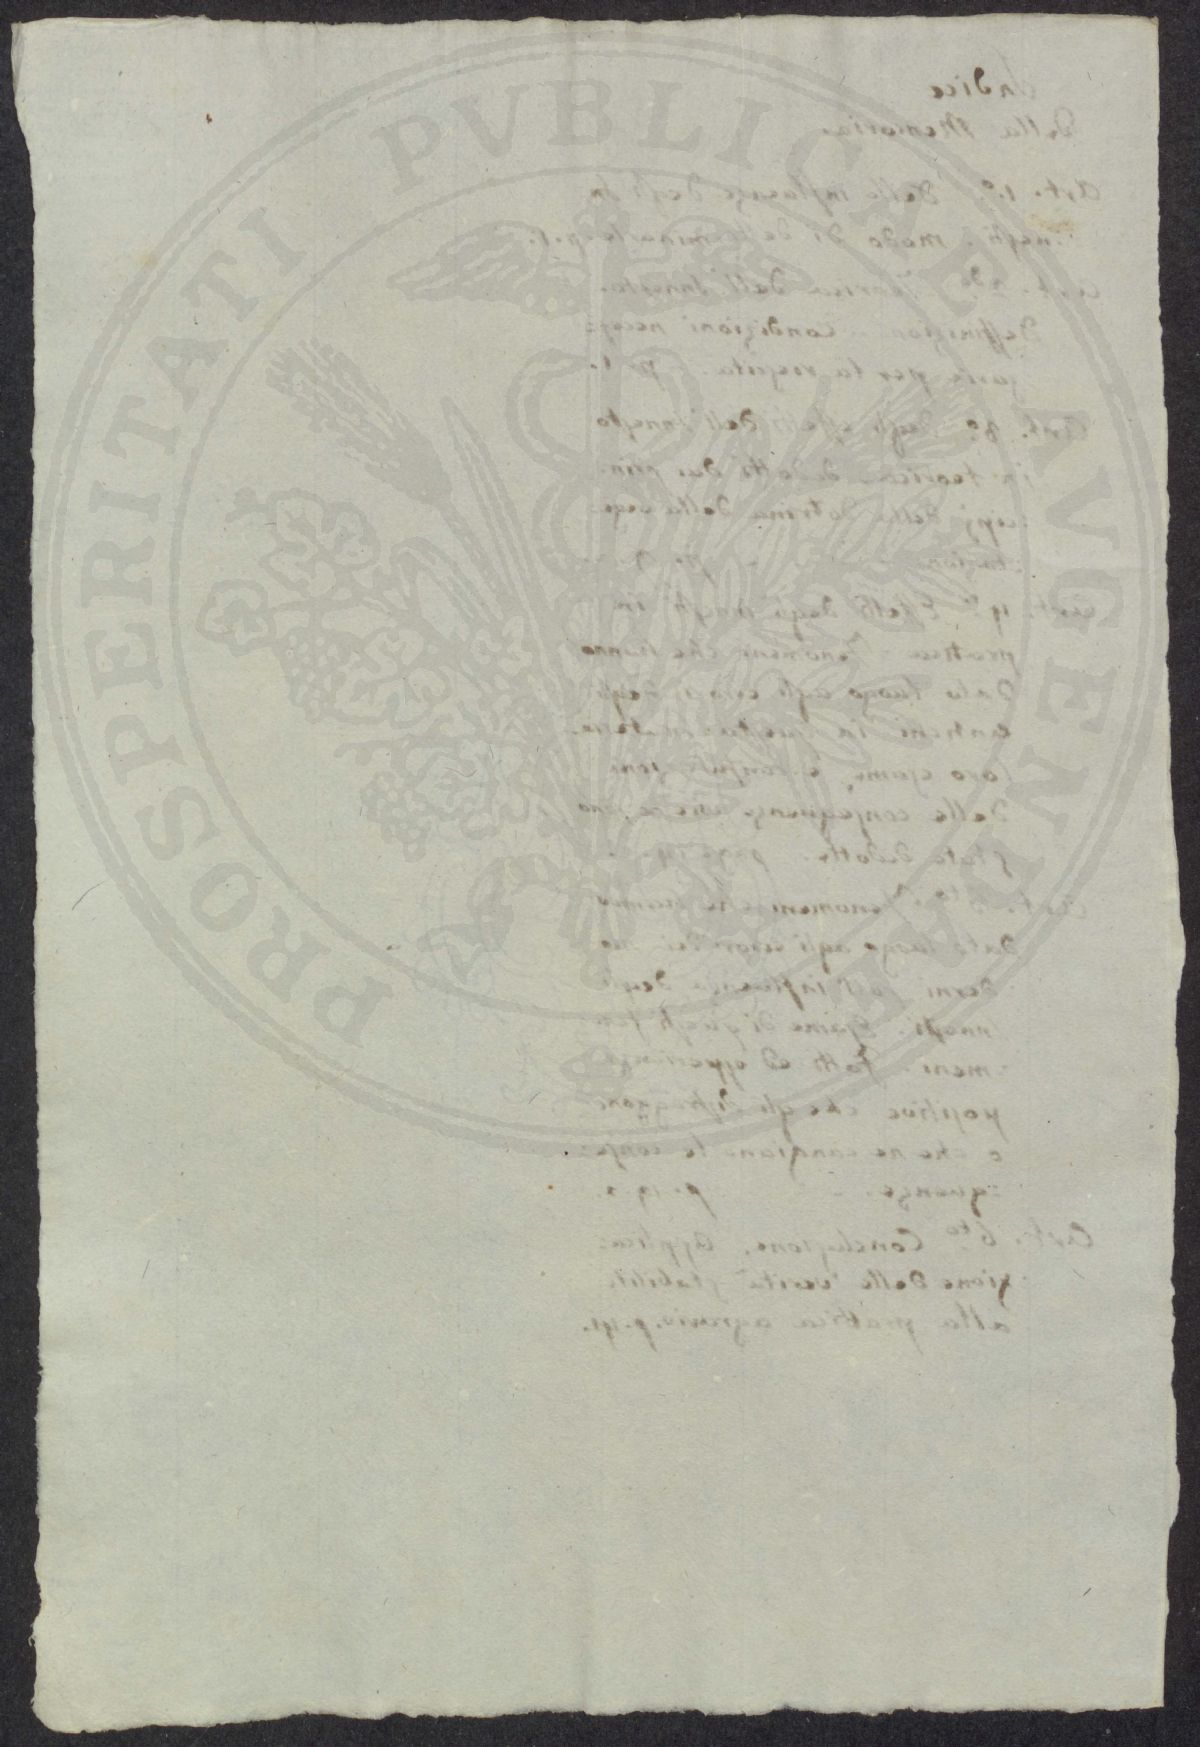 PROSPERITATI PVBLICAE AVGENDAE
Indice
della Memoria.
Art. 1.º Della influenza degli In
nesti. modo di determinarla p. 1.
Art. 2.do Teorica dell'Innesto.
Deffinizione condizioni neces=
sarie per la riuscita. p.
Art. 3.º Degli effetti dell'Innesto
in teorica dedotti dai prin=
cipj della dotrina della vege=
tazione. p.
Art. 4.º Effetti degli innesti in
pratica. Fenomeni che hanno
dato luogo agli errori degli
antichi in questa materia.
loro esame, e confutazione
delle conseguenze che ne sono
state dedotte. pag.
Art. 5.to Fenomeni che hanno
dato luogo agli errori dei mo
derni sull'influenza degli
innesti. Esame di questi feno
meni. Fatti ed esperienze
positive che gli distruggono
e che ne cangiano le conse=
guenze. p.
Art. 6.to Conclusione. Applica=
zione delle verità stabilite
alla prattica agraria. p.